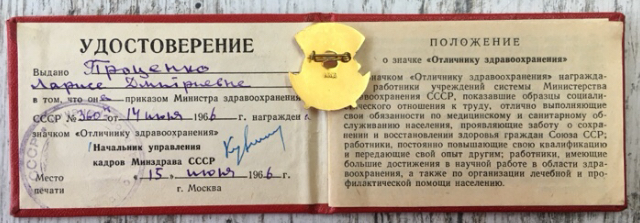 УДОСТОВЕРЕНИЕ
Выдано Проценко
Ларисе Дмитриевне
в том, что она приказом Министра здравоохранения
СССР № 360-н от 14 июня 1966 г. награжден
значком «Отличнику здравоохранения»
Начальник управления
кадров Минздрава СССР
Место „15" июня 1966 г.
печати г. Москва
ПОЛОЖЕНИЕ
о значке «Отличнику здравоохранения»
значком «Отличнику здравоохранения» награжда-
работники учреждений системы Министерства
здравоохранения СССР, показавшие образцы социали-
ческого отношения к труду, отлично выполняющие
свои обязанности по медицинскому и санитарному об-
обслуживанию населения, проявляющие заботу о сохране-
нии и восстановлении здоровья граждан Союза ССР;
работники, постоянно повышающие свою квалификацию
и передающие свой опыт другим; работники, имеющие
большие достижения в научной работе в области здра-
воохранения, а также по организации лечебной и про-
филактической помощи населению.